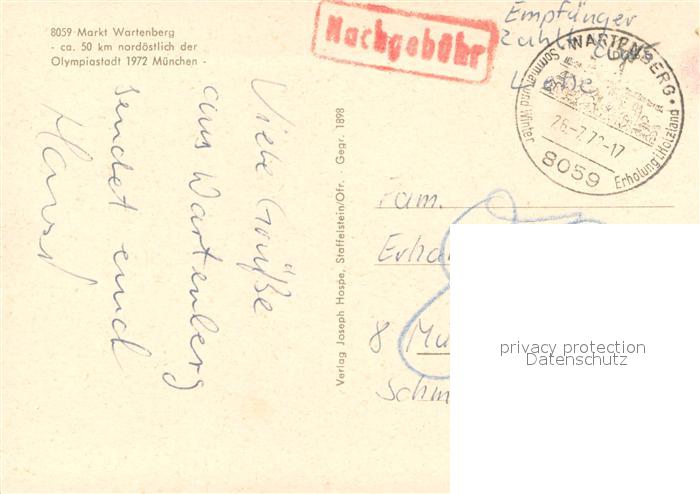 8059 Markt Wartenberg
- ca. 50 km nordöstlich der
Olympiastadt 1972 München -
Nachgebühr
Empfänger
zahlt aus
Liebe
WARTENBERG
Sommer und Winter
Erholung i. Holzland
26.-7.72-17
8059
Viele Grüße
aus Wartenberg
sendet euch
Verlag Joseph Hospe, Staffelstein/Ofr. · Gegr. 1898
Fam.
Erha
8 Mü
Schm
privacy protection
Datenschutz